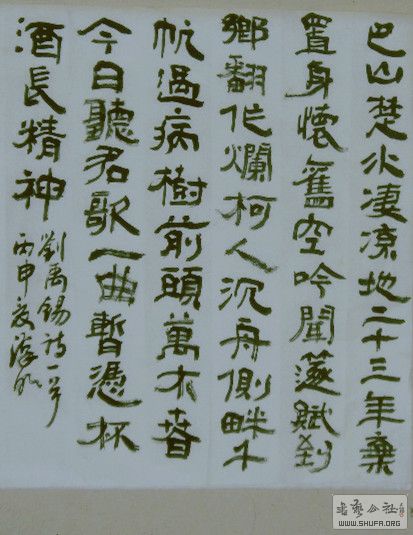 巴山楚水淒涼地二十三年棄
置身懷舊空吟聞篴賦到
鄉翻作爛柯人沉舟側畔千
帆過病樹前頭萬木春
今日聽君歌一曲暫憑杯
酒長精神
劉禹錫詩一首
丙申
书艺公社
WWW.SHUFA.ORG